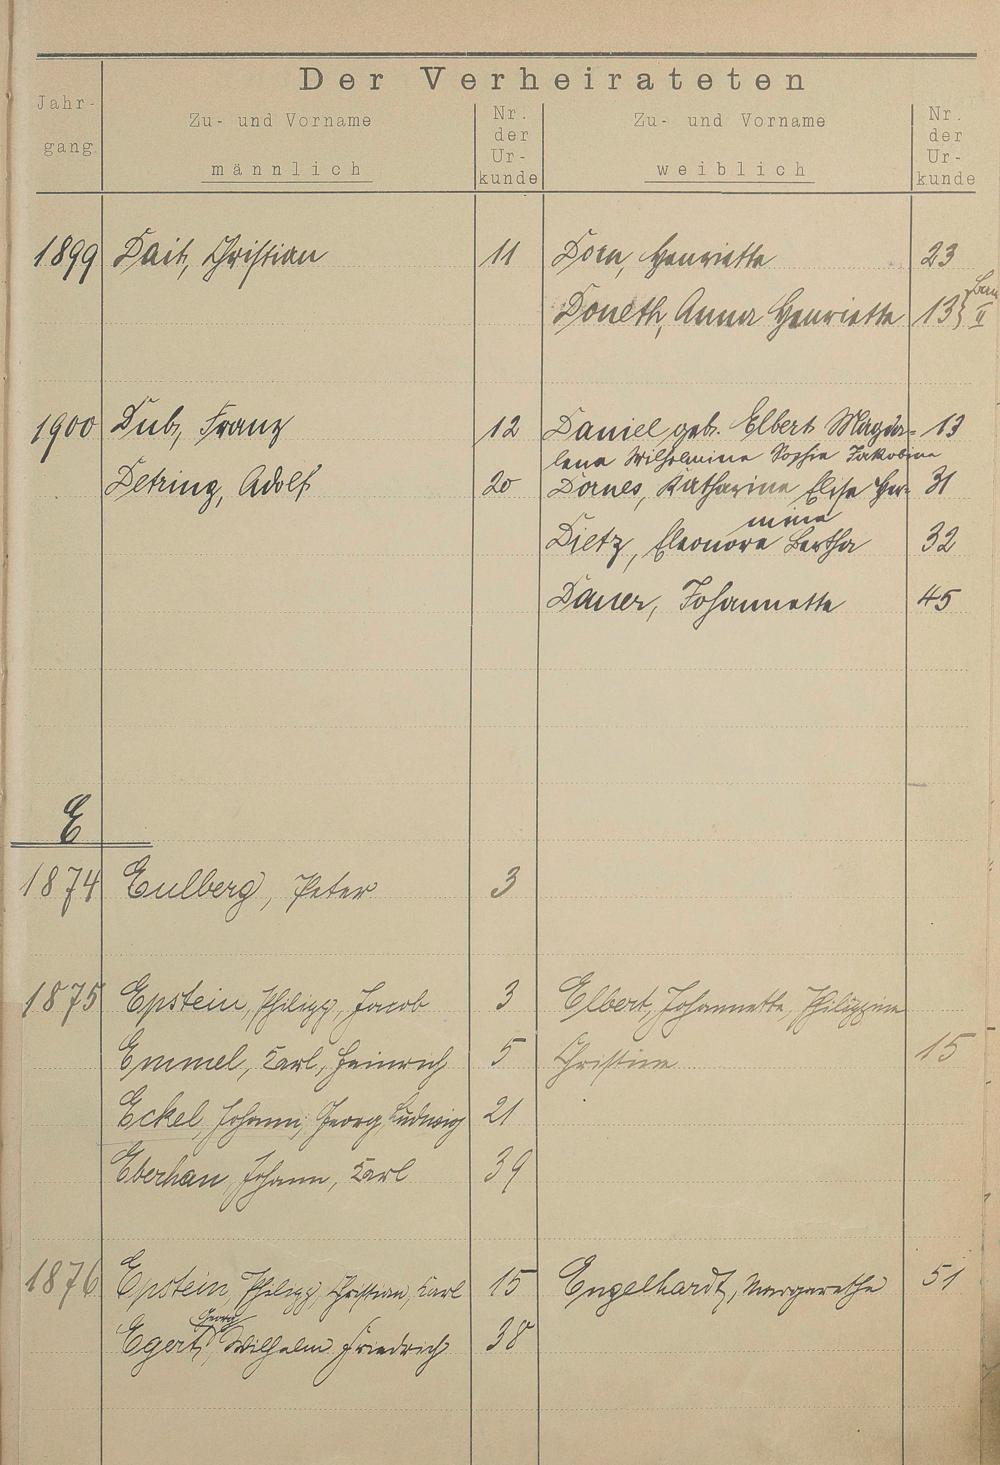 Der Verheirateten
Jahr-
gang
Zu- und Vorname
männlich
Nr.
der
Ur-
kunde
Zu- und Vorname
weiblich
Nr.
der
Ur-
kunde
1899 Dait, Christian 11 Dorn, Henriette 23
Doneth, Anna Henriette 13 } II
1900 Dub, Franz 12 Daniel geb. Elbert Magda- 13
lena Wilhelmine Sophie Jakobine
Detring, Adolf 20 Dornes, Katharina Elise Her- 31
mine
Dietz, Eleonore Bertha 32
Dauer, Johannette 45
E
1874 Eulberg, Peter 3
1875 Epstein, Philipp, Jacob 3 Elbert, Johannette, Philippine
Emmel, Karl, Heinrich 5 Christine 15
Eckel, Johann, Georg, Ludwig 21
Eberhau, Johann, Karl 39
1876 Epstein, Philipp, Christian, Karl 15 Engelhardt, Margarethe 51
Georg
Egert, Wilhelm Friedrich 38